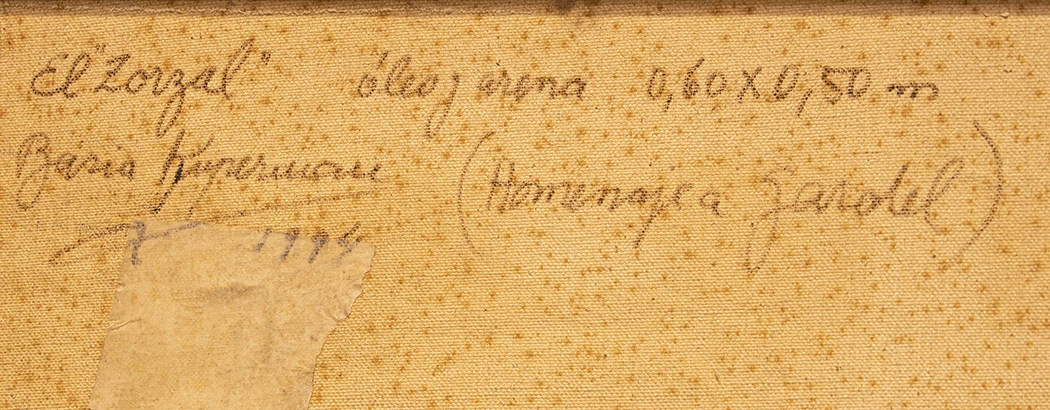 El "Zorzal" óleo y arena 0,60 X 0,50 m
Basia Kuperman (Homenaje a Gardel)
1994